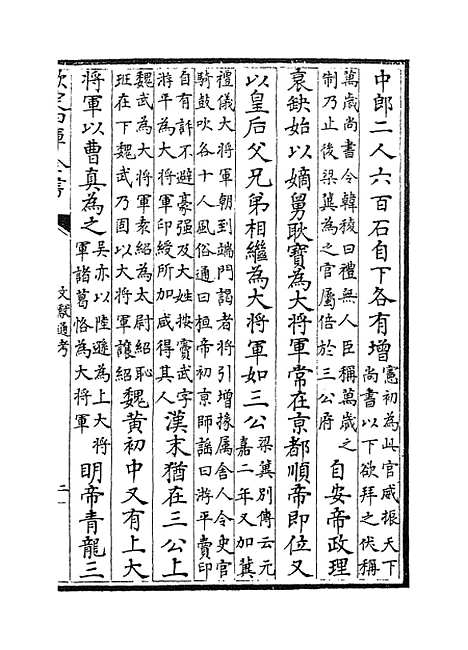 中郎二人六百石自下各有增憲初為此官威振天下尚書以下欲拜之伏稱
萬歲尚書令韓稜曰禮無人臣稱萬歲之制乃止後梁冀為之官屬倍於三公府自安帝政理
衰缺始以嫡舅耿寶為大將軍常在京都順帝即位又
以皇后父兄弟相繼為大將軍如三公梁冀别傳云元嘉二年又加冀
禮儀大將軍朝到端門謁者將引增掾屬舍人令史官騎鼓吹各十人風俗通曰桓帝初京師謡曰游平賣印
自有評不避豪强及大姓按竇武字游平為大將軍印綬所加咸得其人漢末猶在三公上
魏武為大將軍袁紹為太尉紹恥班在下魏武乃固以大將軍讓紹魏黄初中又有上大
將軍以曹真為之吳亦以陸遜為上大將軍諸葛恪為大將軍明帝青龍三
欽定四庫全書
文獻通考